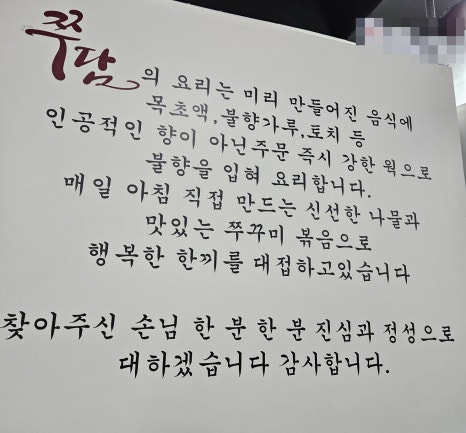 쭈담의 요리는 미리 만들어진 음식에
목초액,불향가루,토치 등
인공적인 향이 아닌주문 즉시 강한 웍으로
불향을 입혀 요리합니다.
매일 아침 직접 만드는 신선한 나물과
맛있는 쭈꾸미 볶음으로
행복한 한끼를 대접하고있습니다
찾아주신 손님 한 분 한 분 진심과 정성으로
대하겠습니다 감사합니다.